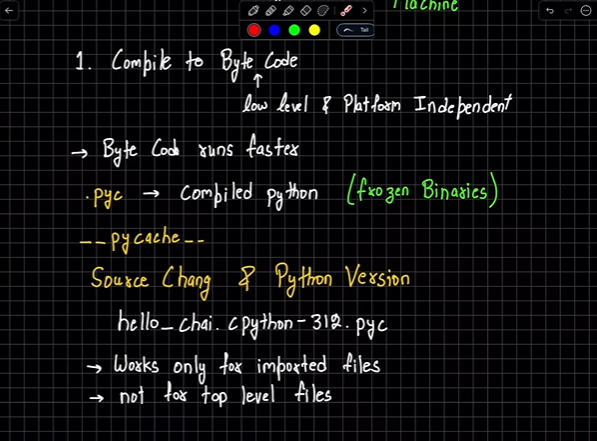 Machine
Tail
1. Compile to Byte Code
↑
low level & Platform Independent
→ Byte Code runs faster
.pyc → compiled python (frozen Binaries)
__pycache__
Source Chang & Python Version
hello_chai.cpython-312.pyc
→ Works only for imported files
→ not for top level files